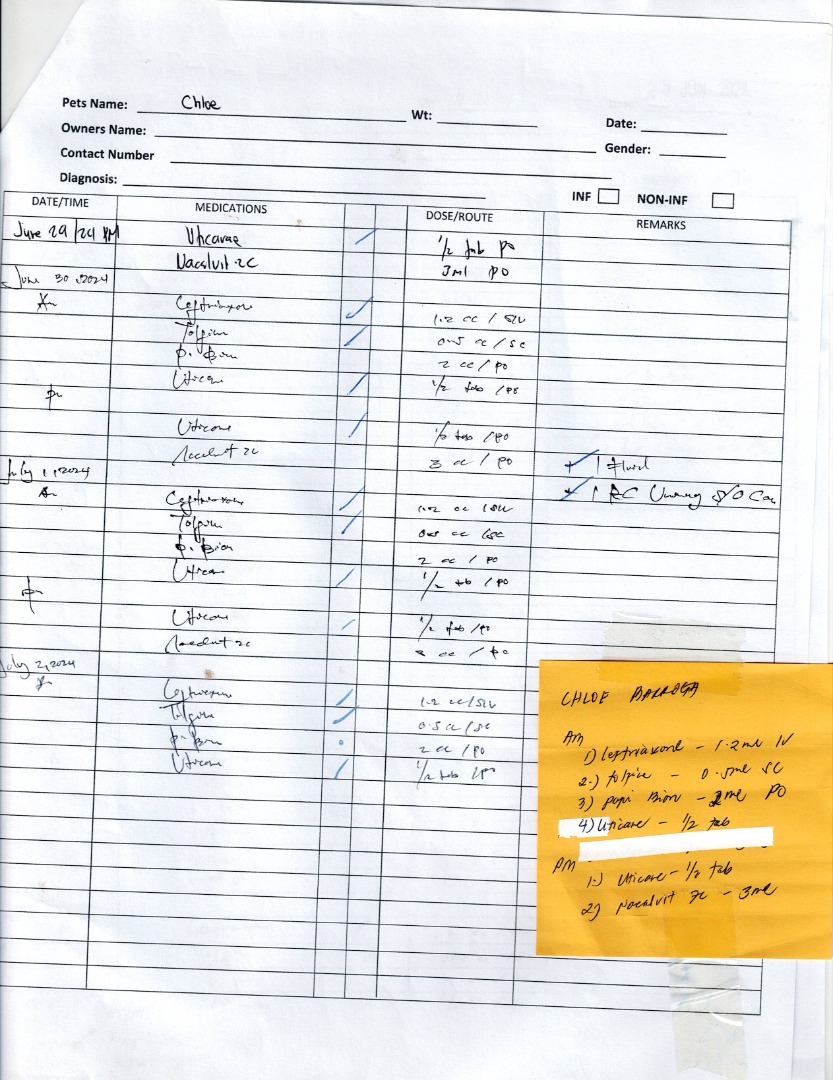 Pets Name: Chloe Wt: Date:
Owners Name: Gender:
Contact Number
Diagnosis: INF NON-INF
DATE/TIME MEDICATIONS DOSE/ROUTE REMARKS
June 29/24 PM Uticare 1/2 tab PO
Nacalvit 2C 3ml PO
June 30, 2024
Am Ceftriaxone 1.2 cc / SIV
Tolfine 0.5 cc / SC
P. Bion 2 cc / PO
Uticare 1/2 tab / PO
pm
Uticare 1/2 tab / PO
Nacalvit 2C 3 cc / PO + 1 Fluid
July 1, 2024 + 1 RC Urinary S/O Can
Am Ceftriaxone 1.2 cc / SIV
Tolfine 0.5 cc / SC
P. Bion 2 cc / PO
Uticare 1/2 tab / PO
pm
Uticare 1/2 tab / PO
Nacalvit 2C 3 cc / PO
July 2, 2024
Ceftriaxone 1.2 cc / SIV
Tolfine 0.5 cc / SC
P. Bion 2 cc / PO
Uticare 1/2 tab / PO
CHLOE BARROGA
AM
1) Ceftriaxone - 1.2ml IV
2.) Tolfine - 0.5ml SC
3) papi Bion - 2ml PO
4) Uticare - 1/2 tab
PM
1.) Uticare - 1/2 tab
2) Nacalvit 2c - 3ml